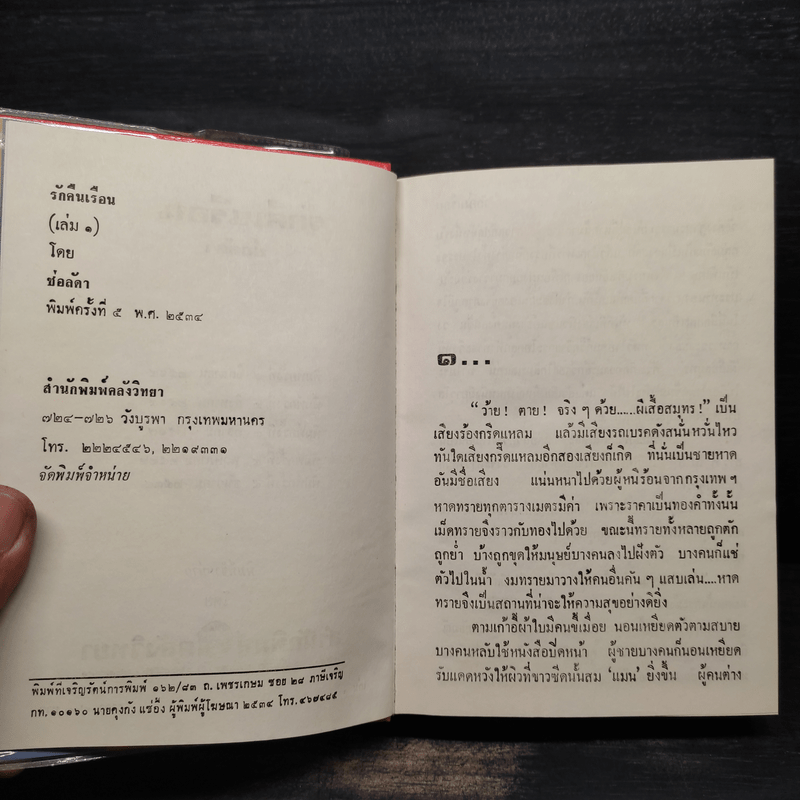 รักคืนเรือน
(เล่ม ๑)
โดย
ช่อลัดา
พิมพ์ครั้งที่ ๕ พ.ศ. ๒๕๓๔
สำนักพิมพ์คลังวิทยา
๗๒๔–๗๒๖ วังบูรพา กรุงเทพมหานคร
โทร. ๒๒๒๔๕๔๖, ๒๒๑๙๓๓๑
จัดพิมพ์จำหน่าย
พิมพ์ที่เจริญรัตน์การพิมพ์ ๑๖๒/๘๓ ถ. เพชรเกษม ซอย ๒๘ ภาษีเจริญ
กท. ๑๐๑๖๐ นายคุงกัง แซ่อึ้ง ผู้พิมพ์ผู้โฆษณา ๒๕๓๔ โทร. ๔๖๗๔๘๕
๑...
“ว้าย! ตาย! จริง ๆ ด้วย.....ผีเสื้อสมุทร!” เป็น
เสียงร้องกรีดแหลม แล้วมีเสียงรถเบรคดังสนั่นหวั่นไหว
ทันใดเสียงกรี๊ดแหลมอีกสองเสียงก็เกิด ที่นั่นเป็นชายหาด
อันมีชื่อเสียง แน่นหนาไปด้วยผู้หนีร้อนจากกรุงเทพ ฯ
หาดทรายทุกตารางเมตรมีค่า เพราะราคาเป็นทองคำทั้งนั้น
เม็ดทรายจึงราวกับทองไปด้วย ขณะนี้ทรายทั้งหลายถูกตัก
ถูกย่ำ บ้างถูกขุดให้มนุษย์บางคนลงไปฝังตัว บางคนก็แช่
ตัวไปในน้ำ งมทรายมาวางให้คนอื่นคัน ๆ แสบเล่น....หาด
ทรายจึงเป็นสถานที่น่าจะให้ความสุขอย่างดิยิ่ง
ตามเก้าอี้ผ้าใบมีคนขี้เมื่อย นอนเหยียดตัวตามสบาย
บางคนหลับใช้หนังสือปิดหน้า ผู้ชายบางคนก็นอนเหยียด
รับแดดหวังให้ผิวที่ขาวซีดนั้นสม ‘แมน’ ยิ่งขึ้น ผู้คนต่าง